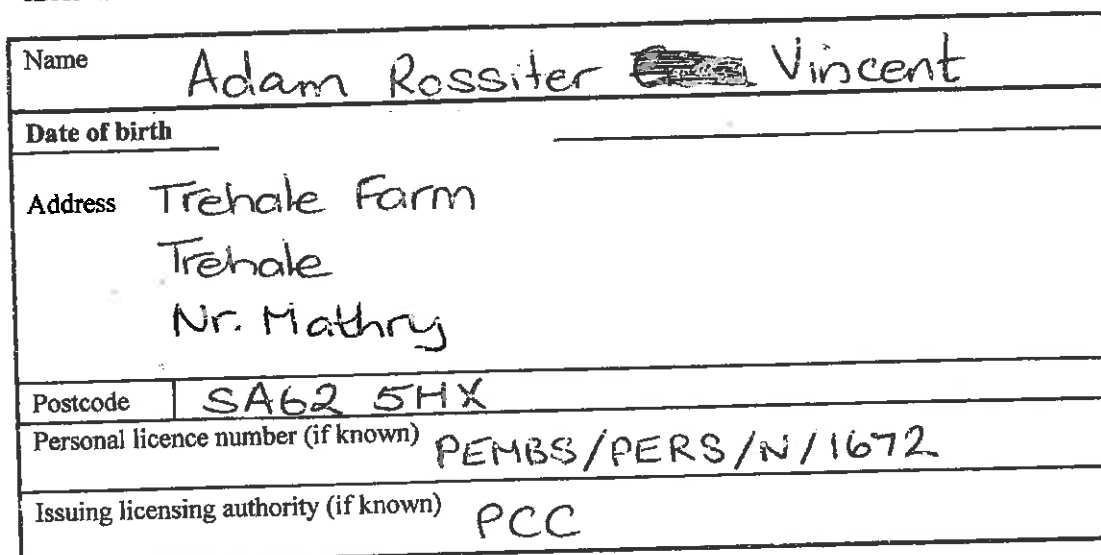 Name Adam Rossiter Vincent
Date of birth
Address Trehale Farm
Trehale
Nr. Mathry
Postcode SA62 5HX
Personal licence number (if known) PEMBS/PERS/N/1672
Issuing licensing authority (if known) PCC